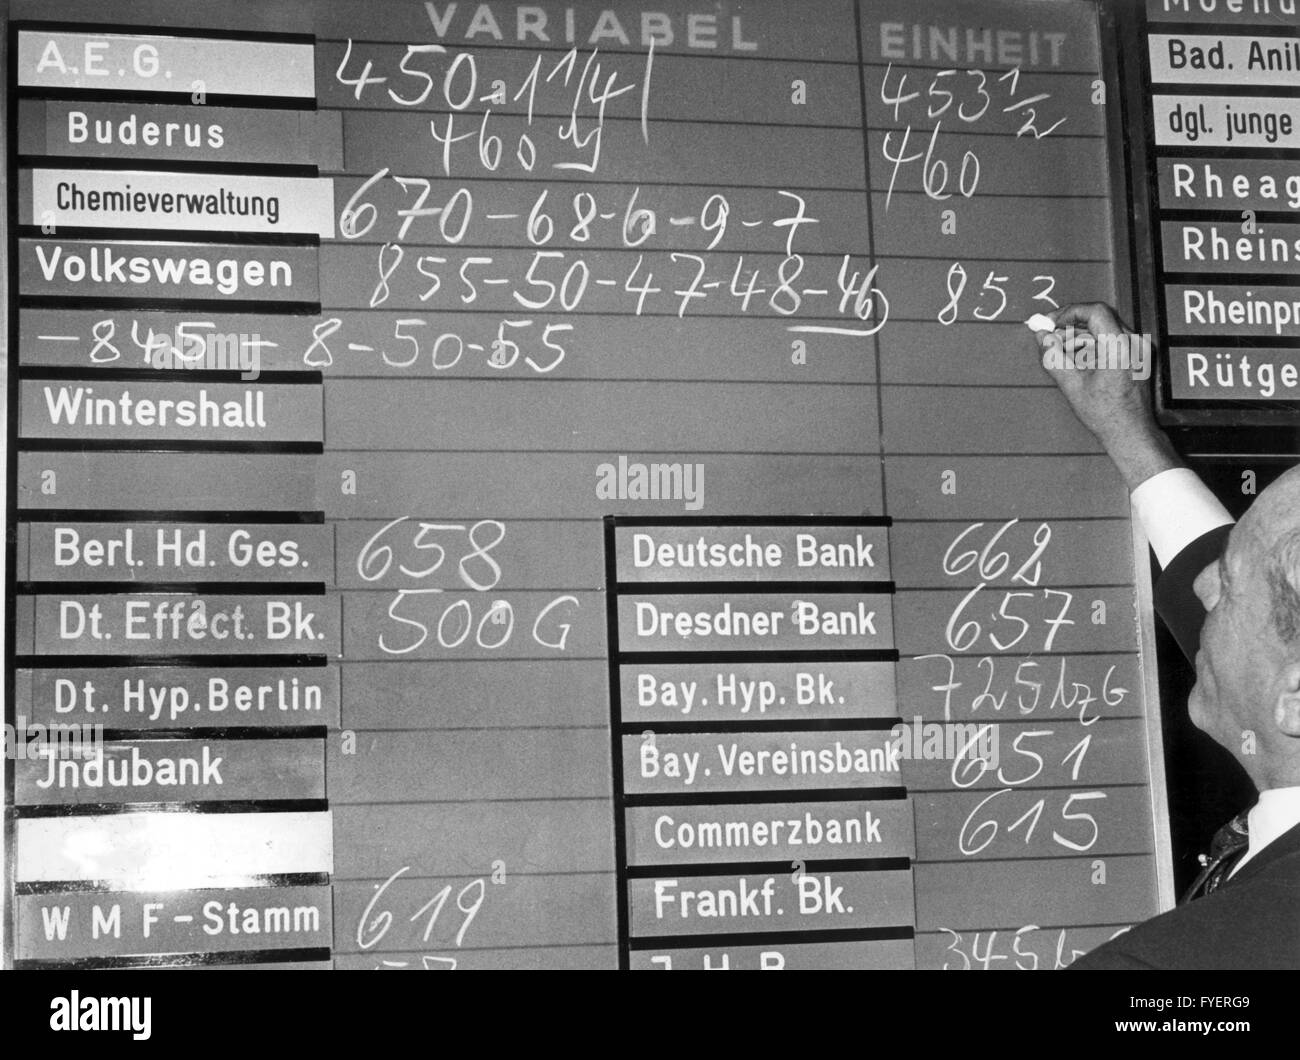 VARIABEL EINHEIT
A.E.G. 450-1 1/4 453 1/2
Buderus 460 460
Chemieverwaltung 670-68-6-9-7
Volkswagen 855-50-47-48-46 852
-845-8-50-55
Wintershall
Berl. Hd. Ges. 658
Dt. Effect. Bk. 500 G
Dt. Hyp. Berlin
Jndubank
W M F-Stamm 619
Deutsche Bank 662
Dresdner Bank 657
Bay. Hyp. Bk. 725 bzG
Bay. Vereinsbank 651
Commerzbank 615
Frankf. Bk.
345
Bad. Anil
dgl. junge
Rheag
Rheins
Rheinpr
Rütge
alamy
Image ID: FYERG9
www.alamy.com